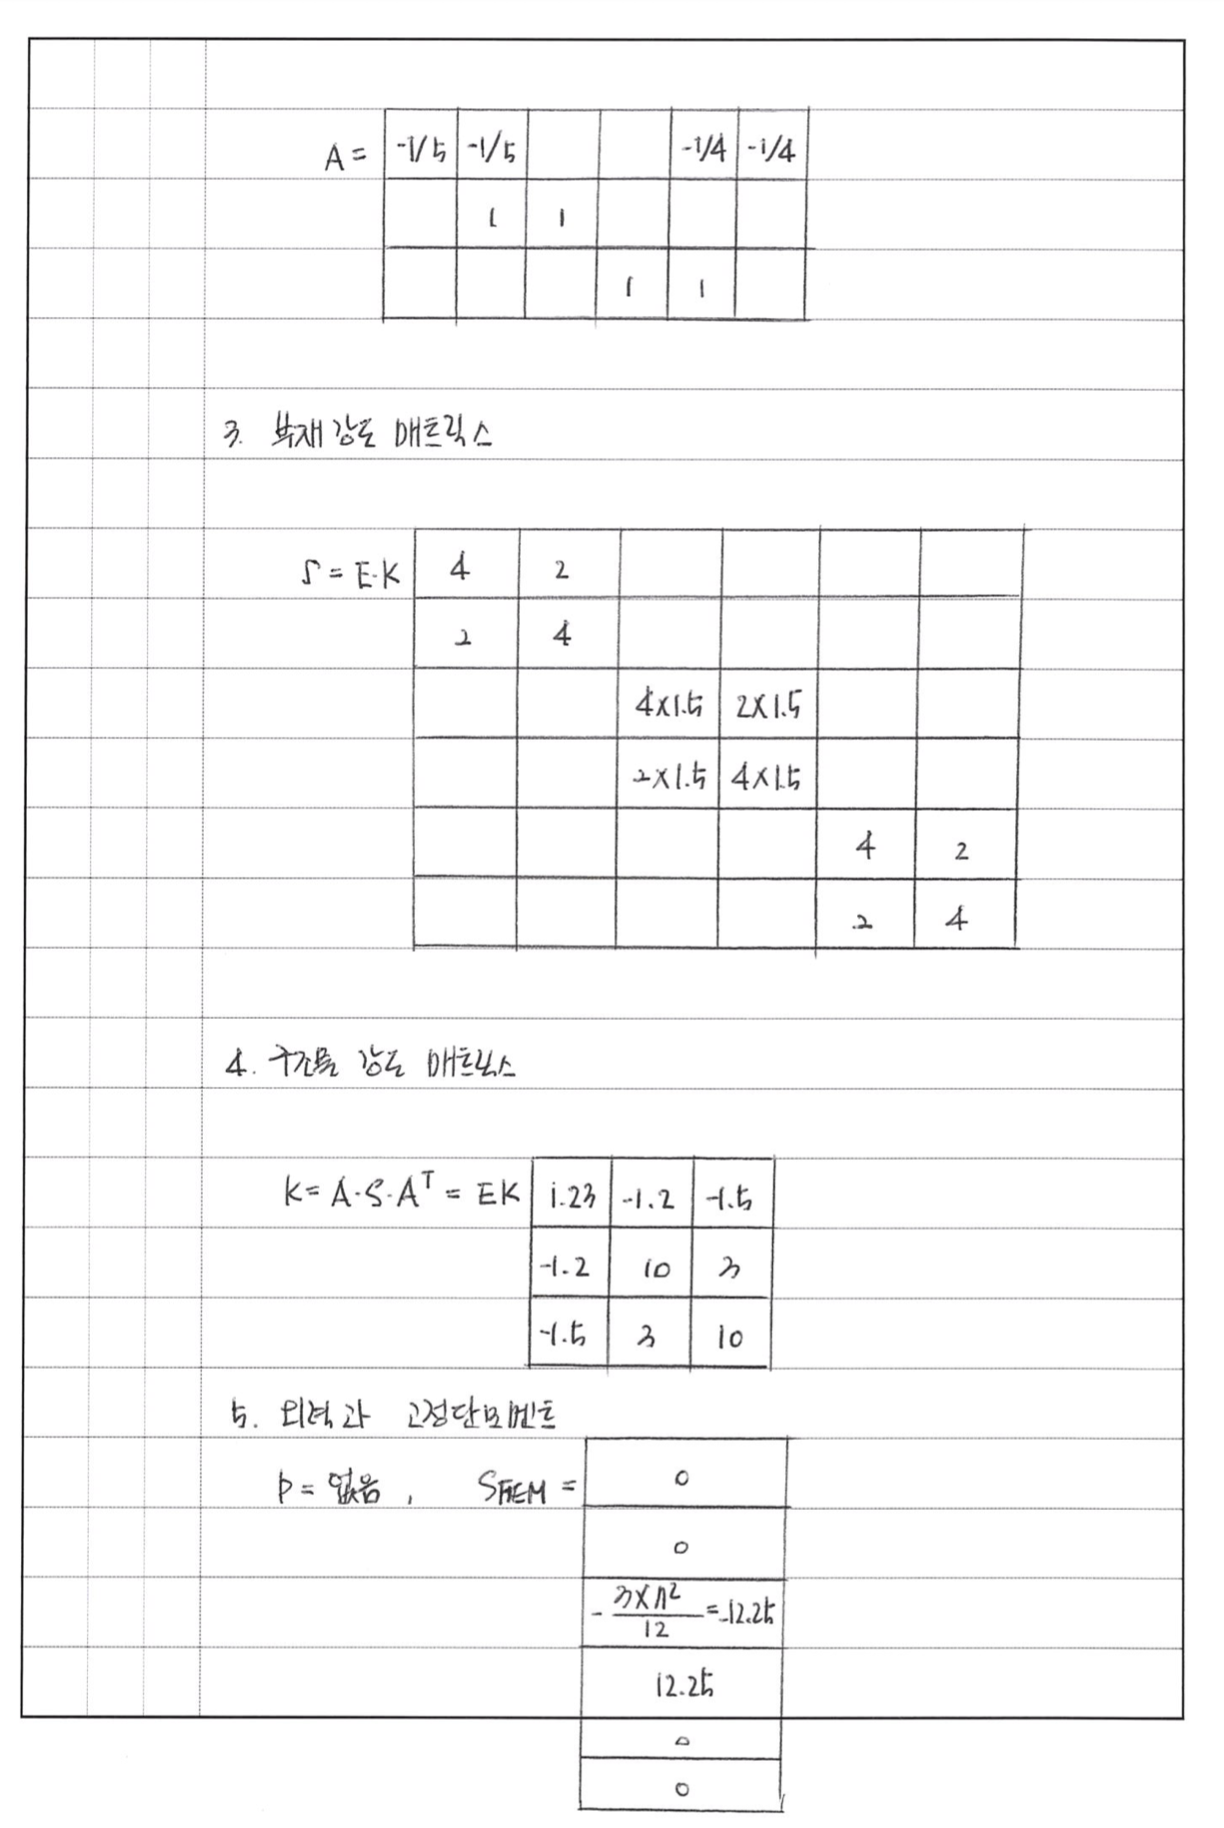 A = -1/5 -1/5 -1/4 -1/4
1 1
1 1
3. 부재 강도 매트릭스
S = E·K 4 2
2 4
4×1.5 2×1.5
2×1.5 4×1.5
4 2
2 4
4. 구조물 강도 매트릭스
K = A·S·Aᵀ = EK 1.23 -1.2 -1.5
-1.2 10 3
-1.5 3 10
5. 외력과 고정단모멘트
P = 없음, SFEM = 0
0
-3×7²/12 = -12.25
12.25
0
0